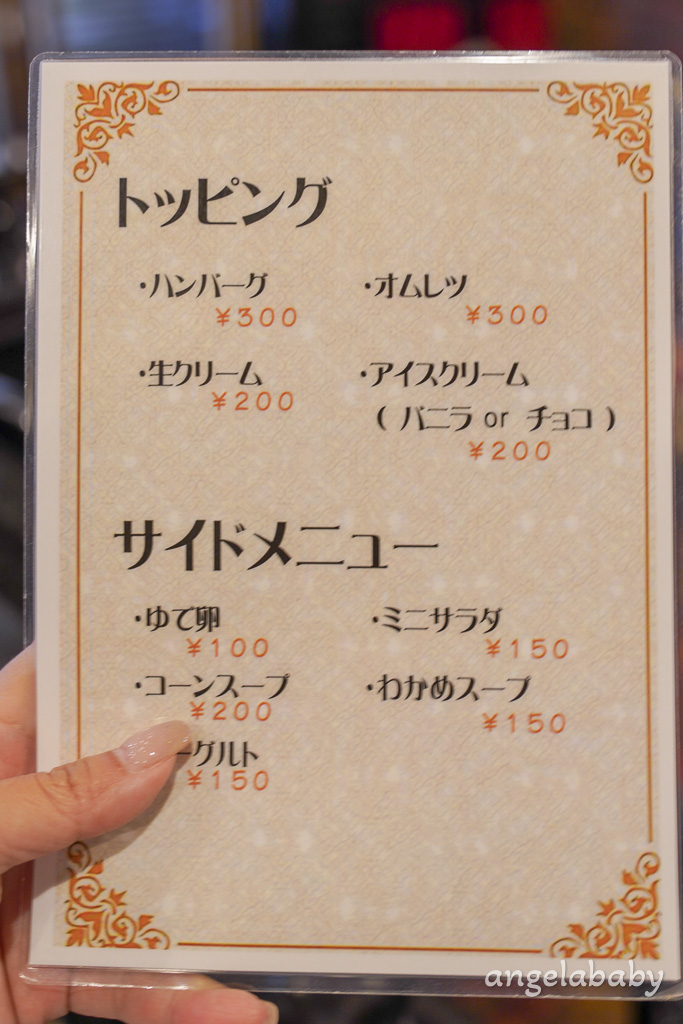 トッピング
・ハンバーグ
¥300
・オムレツ
¥300
・生クリーム
¥200
・アイスクリーム
( バニラ or チョコ )
¥200
サイドメニュー
・ゆで卵
¥100
・ミニサラダ
¥150
・コーンスープ
¥200
・わかめスープ
¥150
ーグルト
¥150
angelababy